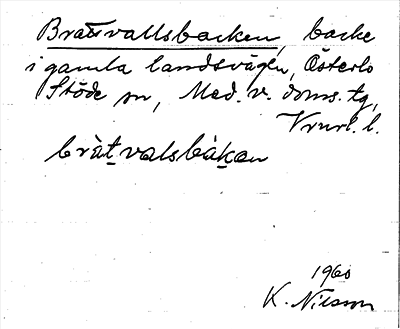 Brattvallsbacken, backe
i gamla landsvägen, Österlo
Stöde sn, Med. v. doms. tg,
Vnrl. l.
bràt valsbàkan
1960
K. Nilsson